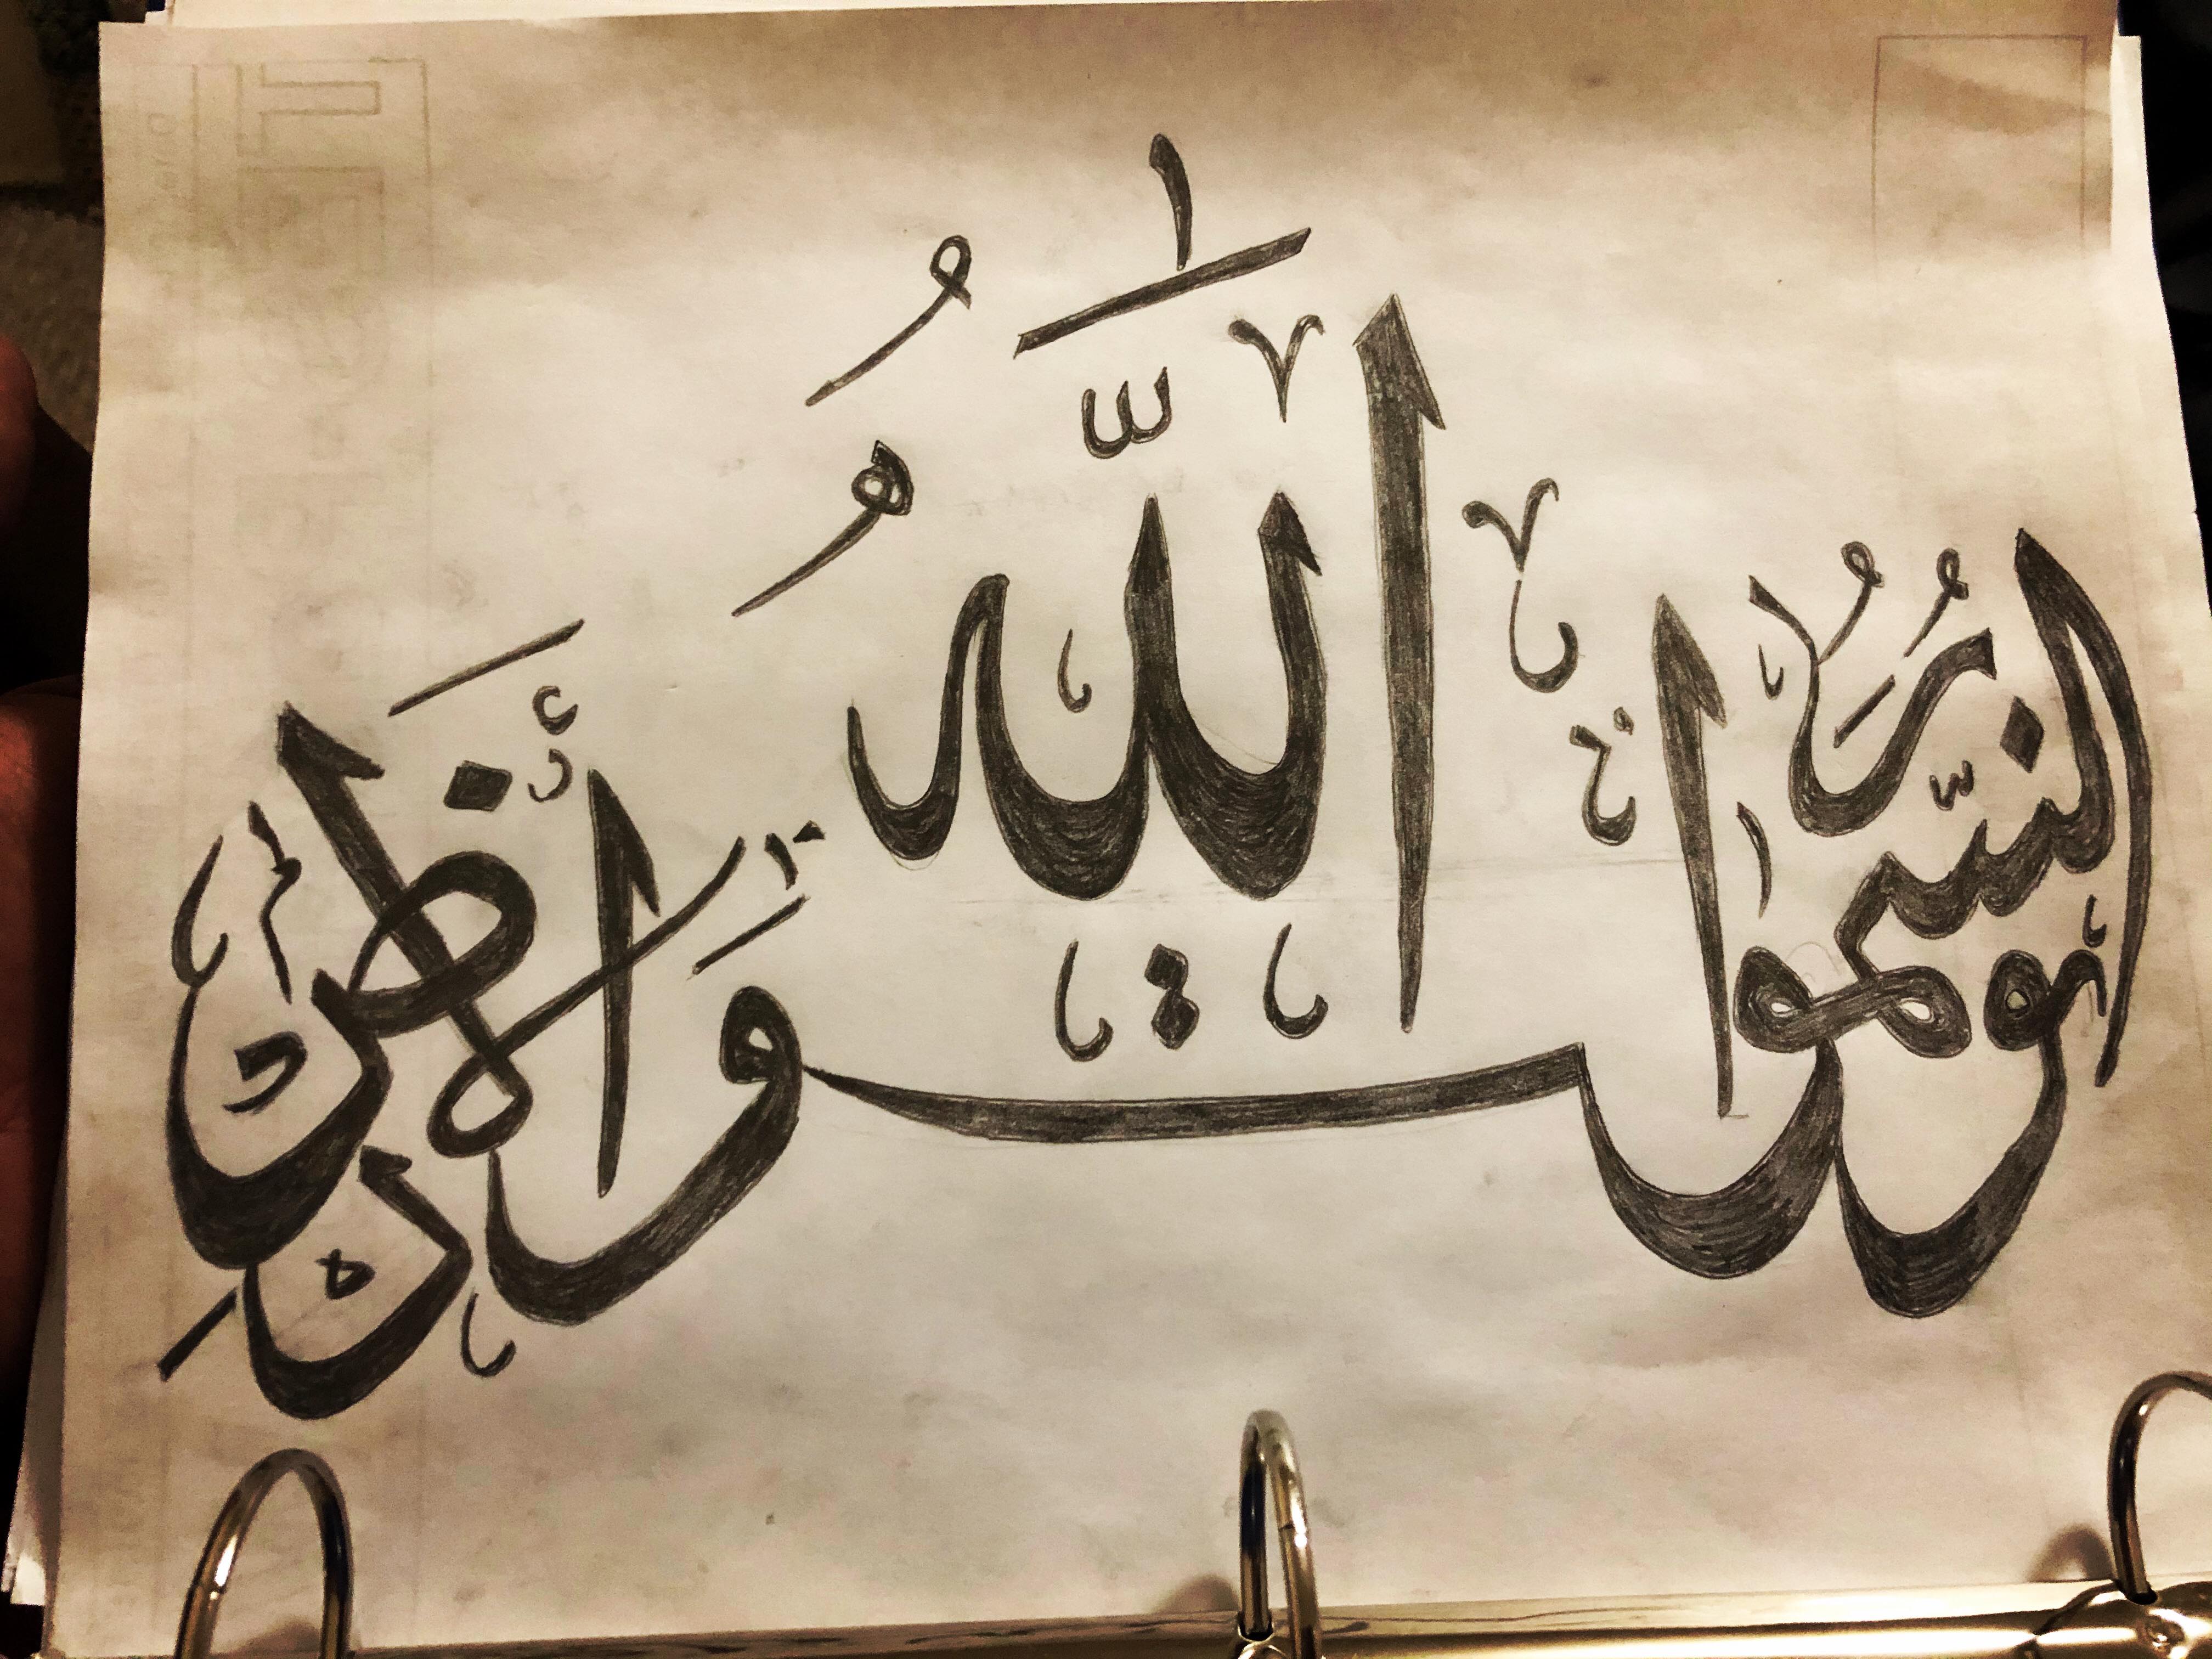 اللَّهُ نُورُ السَّمٰوَاتِ وَالْأَرْضِ